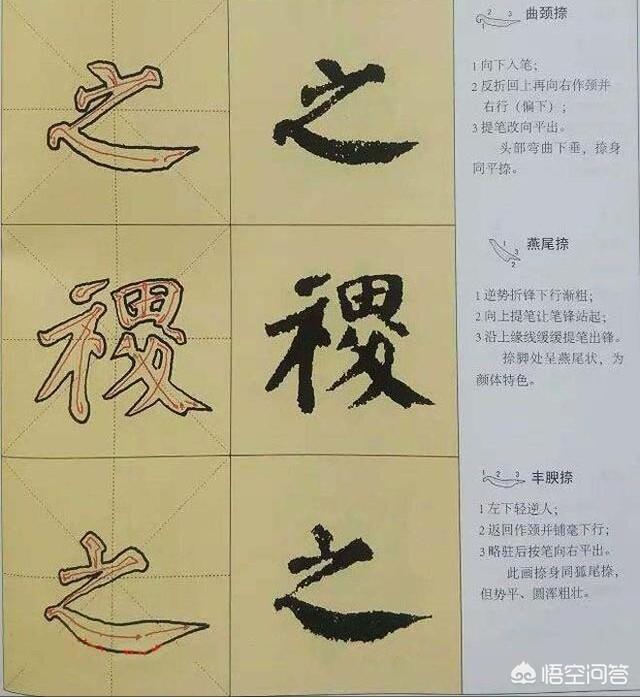 之
之
1 2 3 曲颈捺
1 向下入笔；
2 反折回上再向右作颈并
右行（偏下）；
3 提笔改向平出。
头部弯曲下垂，捺身
同平捺。
禝
禝
1 3 2 燕尾捺
1 逆势折锋下行渐粗；
2 向上提笔让笔锋站起；
3 沿上缘线缓缓提笔出锋。
捺脚处呈燕尾状，为
颜体特色。
之
之
1 2 3 丰腴捺
1 左下轻逆人；
2 返回作颈并铺毫下行；
3 略驻后按笔向右平出。
此画捺身同狐尾捺，
但势平、圆浑粗壮。
悟空问答